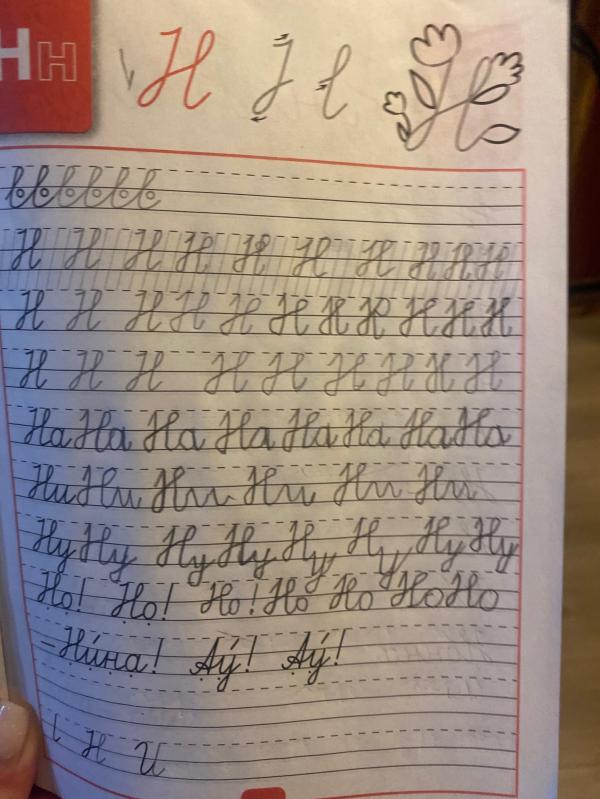 Н н
Н
Н Н Н Н Н Н Н Н Н Н
Н Н Н Н Н Н Н Н Н Н Н
Н Н Н Н Н Н Н Н Н
На На На На На На На На
Ни Ни Ни Ни Ни Ни
Ну Ну Ну Ну Ну Ну Ну Ну
Но! Но! Но! Но Но Но Но
– Ни́на! Ау́! Ау́!
Н И